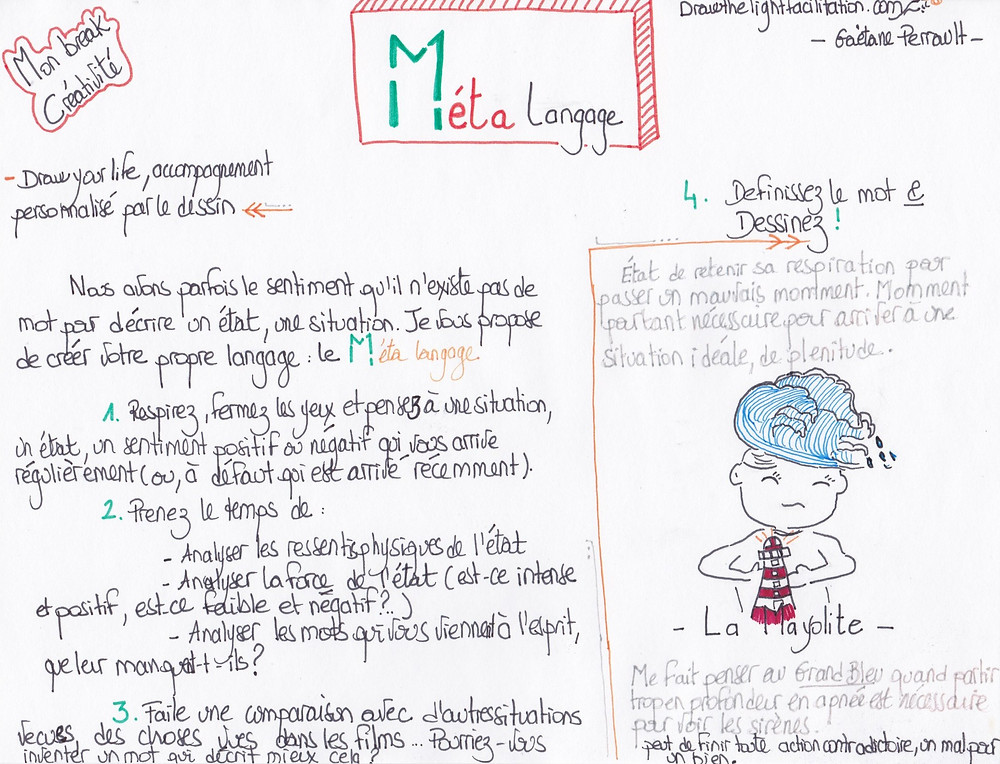 Mon break
Créativité
Méta Langage
Drawthelightfacilitation.com
- Gaëtane Perrault -
- Draw your life, accompagnement
personnalisé par le dessin
Nous avons parfois le sentiment qu'il n'existe pas de
mot pour décrire un état, une situation. Je vous propose
de créer votre propre langage : le Méta langage.
1. Respirez, fermez les yeux et pensez à une situation,
un état, un sentiment positif ou négatif qui vous arrive
régulièrement (ou, à défaut qui est arrivé récemment).
2. Prenez le temps de :
- Analyser les ressentis physiques de l'état
- Analyser la force de l'état (est-ce intense
et positif, est-ce faible et négatif ?..)
- Analyser les mots qui vous viennent à l'esprit,
que leur manquent-t-ils ?
3. Faite une comparaison avec d'autres situations
vecues, des choses vues dans les films ... Pourriez-vous
inventer un mot qui décrit mieux cela ?
4. Definissez le mot &
Dessinez !
État de retenir sa respiration pour
passer un mauvais momment. Momment
pourtant nécessaire pour arriver à une
situation idéale, de plenitude..
- La Mayolite -
Me fait penser au Grand Bleu quand partir
trop en profondeur en apnée est nécessaire
pour voir les sirènes.
peut définir toute action contradictoire, un mal pour
un bien.